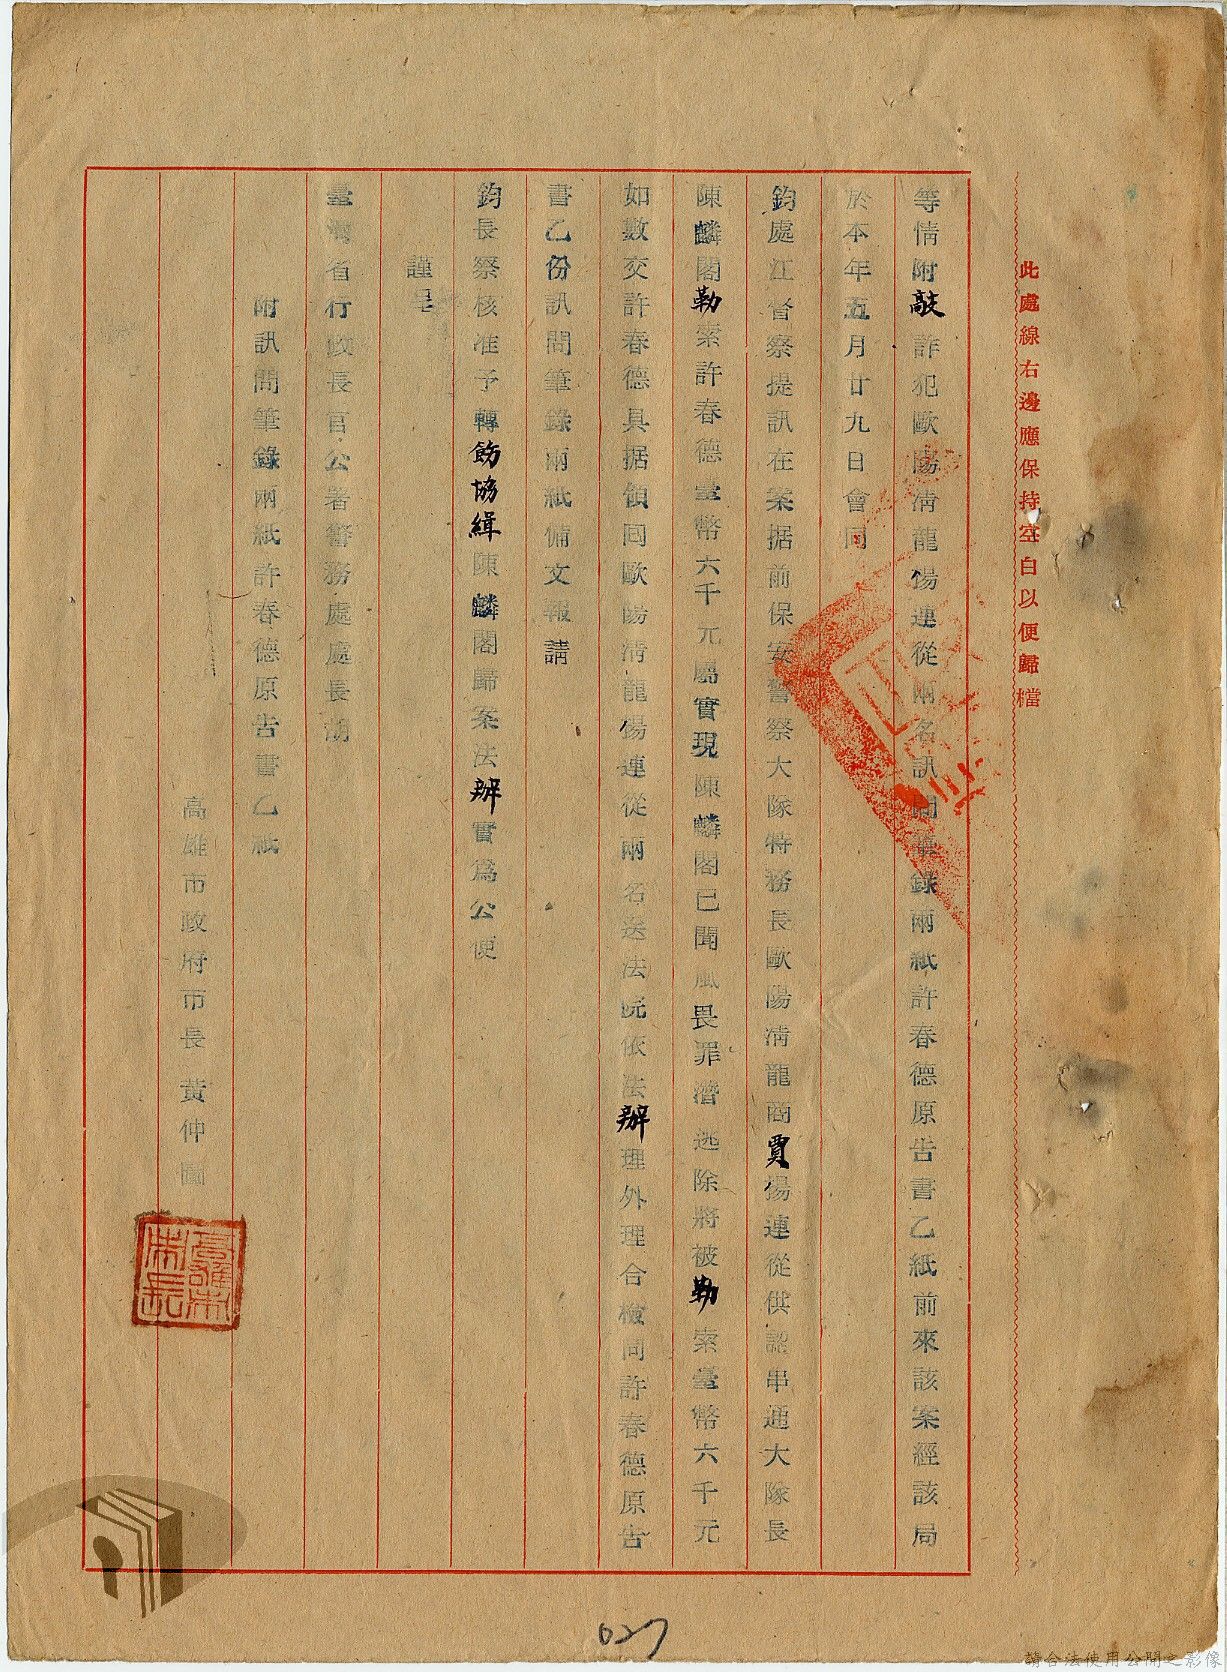 此處線右邊應保持空白以便歸檔
等情附敲詐犯歐陽清龍傷連從兩名訊問筆錄兩紙許春德原告書乙紙前來該案經該局
於本年五月廿九日會同
鈞處江督察提訊在案据前保安警察大隊特務長歐陽清龍商賈傷連從供認串通大隊長
陳麟閣勒索許春德臺幣六千元屬實現陳麟閣已聞風畏罪潛逃除將被勒索臺幣六千元
如數交許春德具据領回歐陽清龍傷連從兩名送法院依法辦理外理合檢同許春德原告
書乙份訊問筆錄兩紙備文報請
鈞長察核准予轉飭協緝陳麟閣歸案法辦實為公便
謹呈
臺灣省行政長官公署警務處處長胡
附訊問筆錄兩紙許春德原告書乙紙
高雄市政府市長黃仲圖
高雄市
市長
027
請合法使用公開之影像